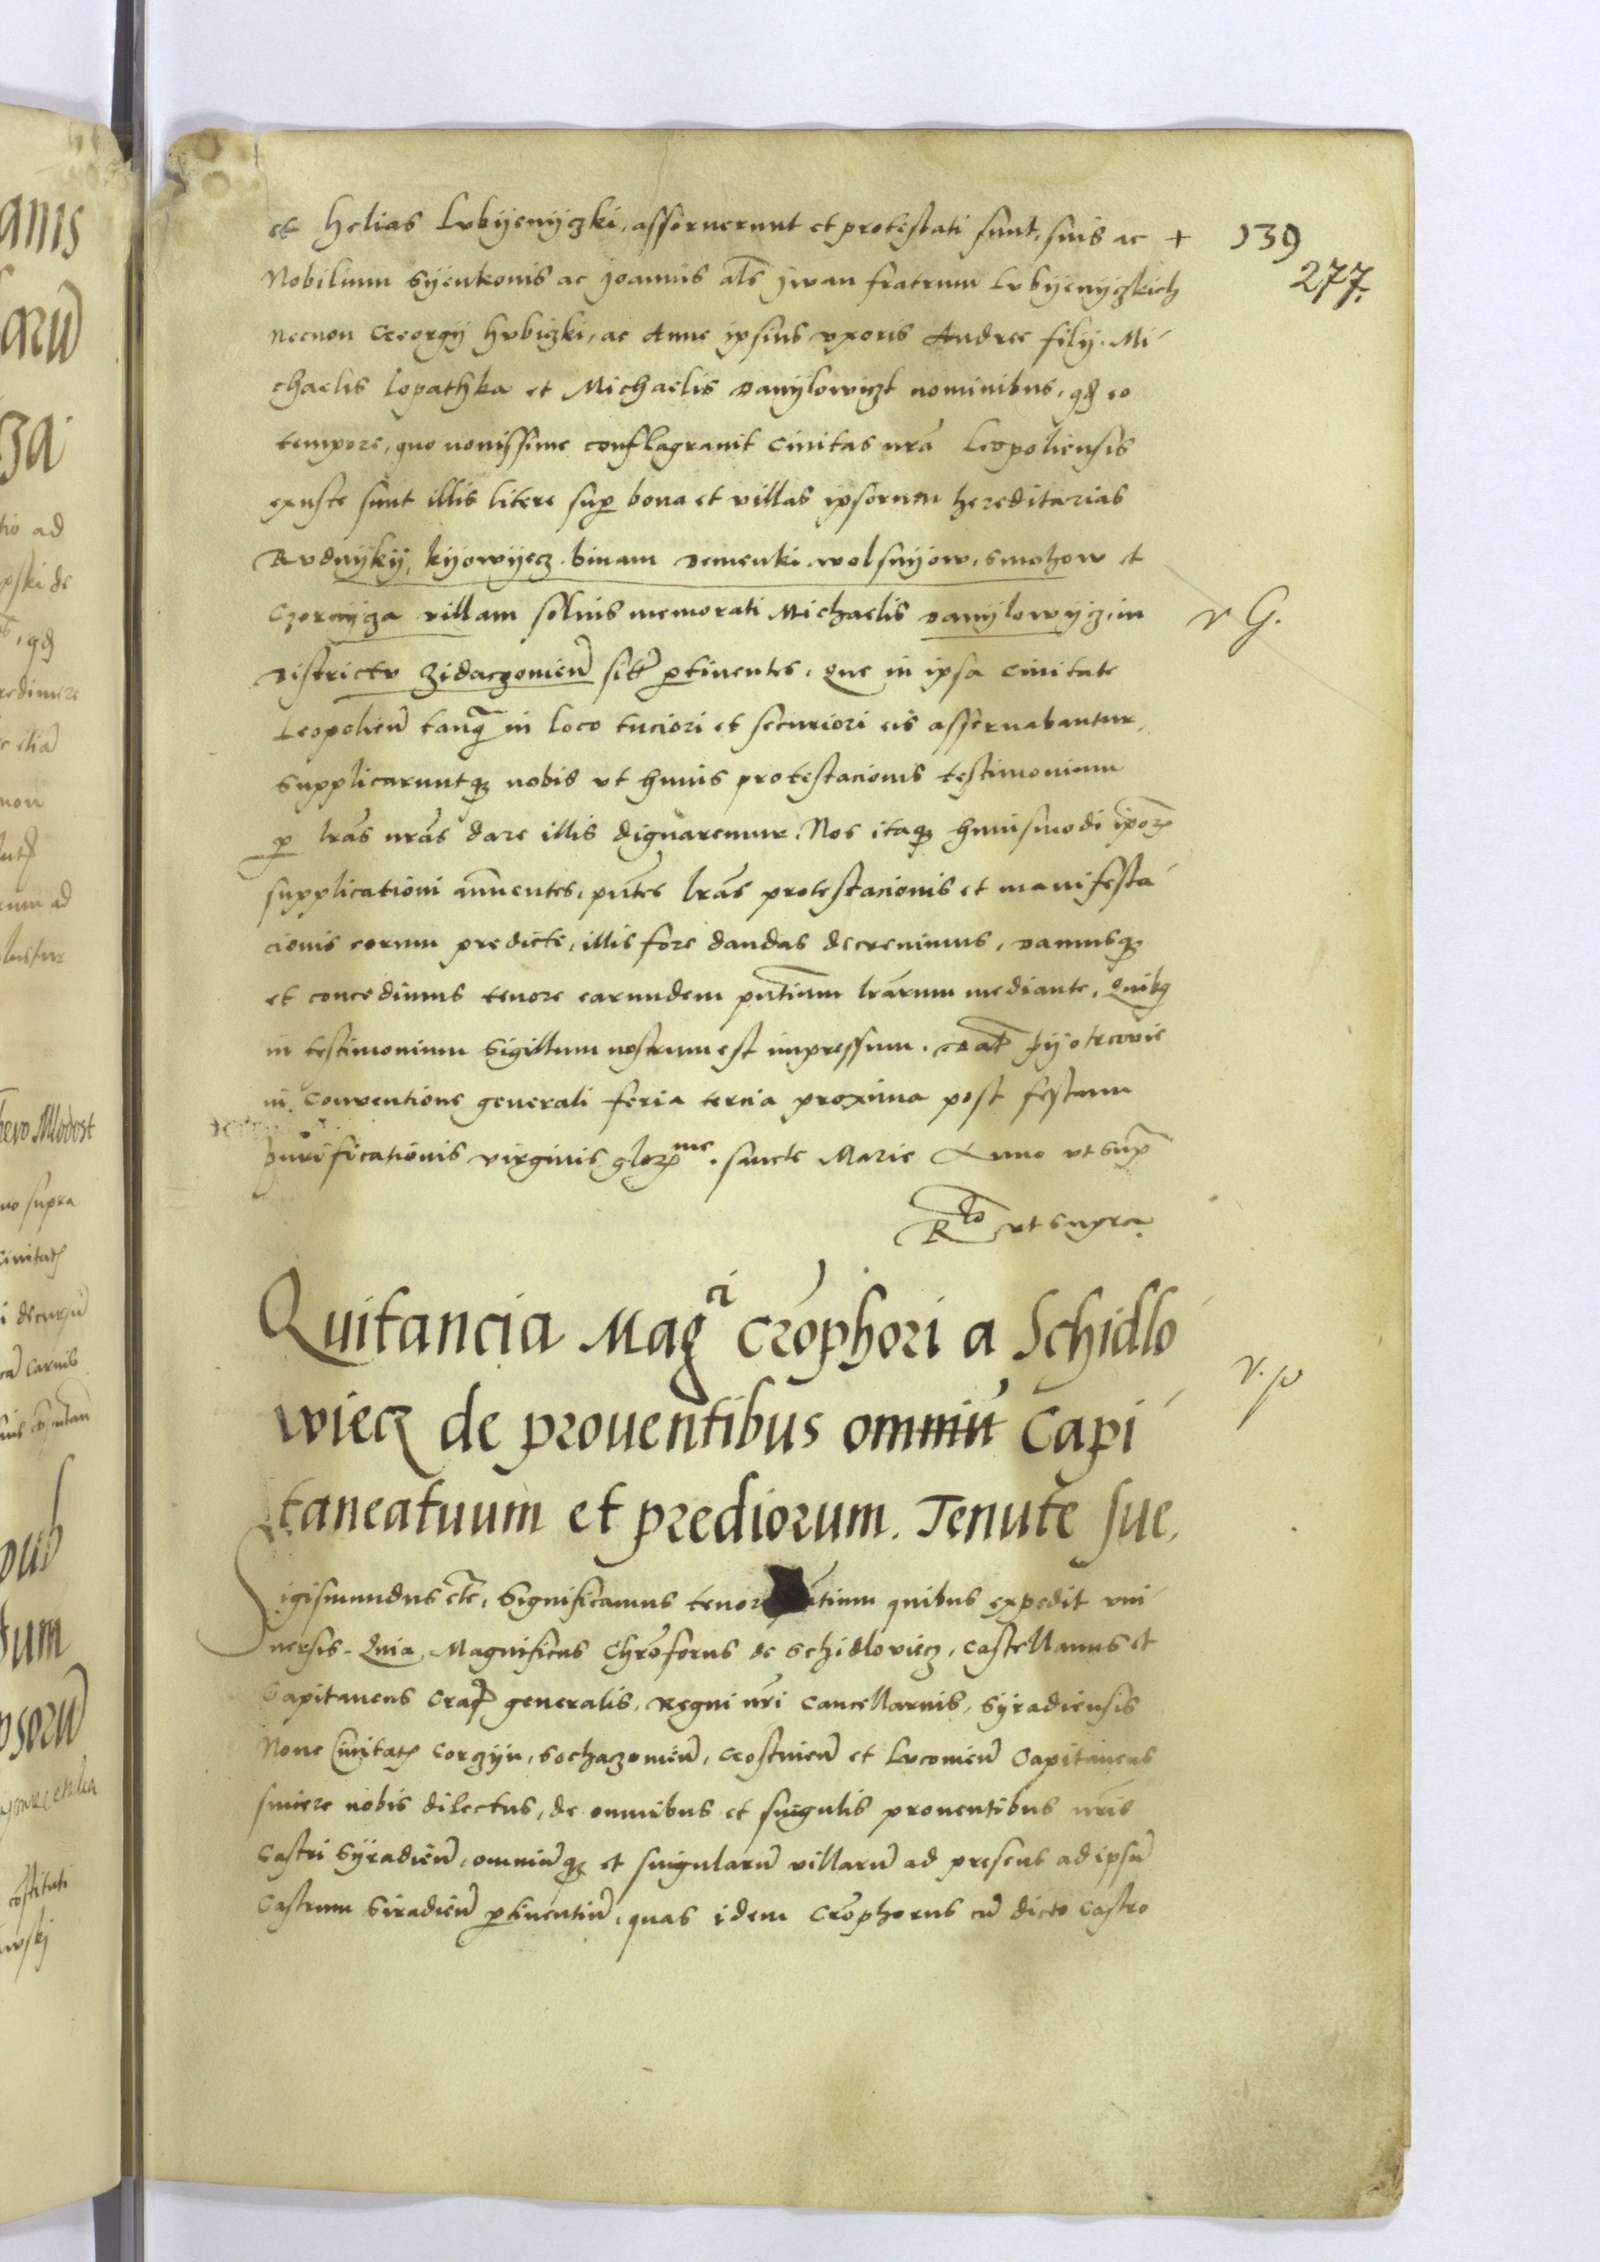 et Helias Lvbyenyczki, asseruerunt et protestati sunt, suis ac +
139
277.
Nobilium Syenkonis ac Joannis als Jwan fratrum Lvbyenyczkich
necnon Georgy Hvbiczki, ac Anne ipsius vxoris Andree fily Mi-
chaelis Lopathka et Michaelis Danylowiczt nominibus, qd eo
tempore, quo nouissime conflagrauit Ciuitas nrã Leopoliensis
exuste sunt illis litere sup bona et villas ipsorum hereditarias
Rvdnykij, kijowijecz, binam Demenki, wolsnijow, smohow et
Czernyza villam solius memorati Michaelis Danylowycz, in
v G.
Districtu Zidaczouien sitt ptinentes, que in ipsa Ciuitate
Leopolien tanq̃ in loco tuciori et securiori eis asseruabantur,
Supplicaruntqz nobis vt huius protestacionis testimonium
p lrãs nrãs dare illis dignaremur. Nos itaqz huiusmodi ipor
supplicationi annuentes, pntes lrãs protestacionis et manifesta-
cionis eorum predicte, illis fore dandas decreuimus, Damusqz
et concedimus tenore earundem pntium lrãrum mediante, Quibq
in testimonium Sigillum nostrum est impressum. Dat Pyotrcouie
in Conuentione generali feria tercia proxima post festum
purificationis virginis glorme. sancte Marie Anno vt sup
Rto vt supra
Quitancia Magci Crõphori a Schidlo-
wiecz de prouentibus omniũ Capi-
v. p
taneatuum et prediorum. Tenute sue.
Sigismundus etc, Significamus tenor ntium quibus expedit vni-
uersis. Quia Magnificus Chrõforus de Schidloviecz, Castellanus et
Capitaneus Crac generalis, Regni nri Cancellarius, Syradiensis
Noue Ciuitats Corzyn, Sochaczouien, Gostnien et Lvcouien Capitaneus
sincere nobis dilectus, de omnibus et singulis prouentibus nris
Castri Syradien, omniuqz et singularũ villarũ ad presens ad ipsũ
Castrum Siradien ptinentiũ, quas idem Crõphorus cũ dicto Castro